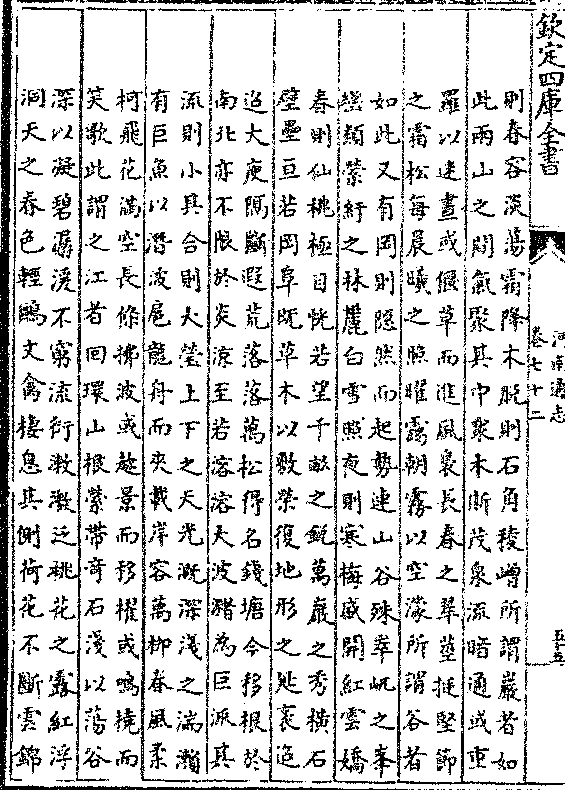 欽定四庫全書
河南通志
卷七十二
五十五
則春容淡蕩霜降木脫則石角稜嶒所謂巖者如
此兩山之間氣聚其中衆木斯茂泉流暗通或垂
羅以迷晝或偃草而進風裊長春之翠莖挺堅節
之霜松每晨曦之照曜靄朝霧以空濛所謂谷者
如此又有岡則隱然而起勢連山谷殊崒屼之峯
巒類縈紆之林麓白雪照夜則寒梅盛開紅雲嬌
春則仙桃極目恍若望千畝之銳萬巖之秀橫石
壁壘亘若岡阜既草木以敷榮復地形之延袤迨
迢大庾隅斷遐荒落落萬松得名錢塘今移根於
南北亦不限於炎涼至若溶溶大波瀦為巨派其
流則小具合則大瑩上下之天光溉深淺之湍瀨
有巨魚以潛波扈龍舟而夾載岸容萬柳春風柔
柯飛花滿空長條拂波或趂景而移櫂或鳴橈而
笑歌此謂之江者回環山根縈帶奇石漫以蕩谷
深以凝碧潺湲不窮流衍潋潋泛桃花之露紅浮
洞天之春色輕鷗文禽棲息其側荷花不斷雲錦